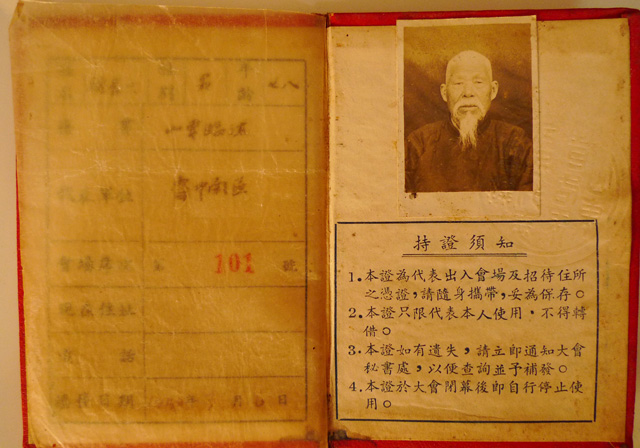 性別 男 年齡 七八
魯中南區
會場座號 第 101 號
現在住址
電話
日期 年 月 日
持證須知
1.本證為代表出入會場及招待住所
之憑證,請隨身攜帶,妥為保存。
2.本證只限代表本人使用,不得轉
借。
3.本證如有遺失,請立即通知大會
秘書處,以便查詢並予補發。
4.本證於大會閉幕後即自行停止使
用。